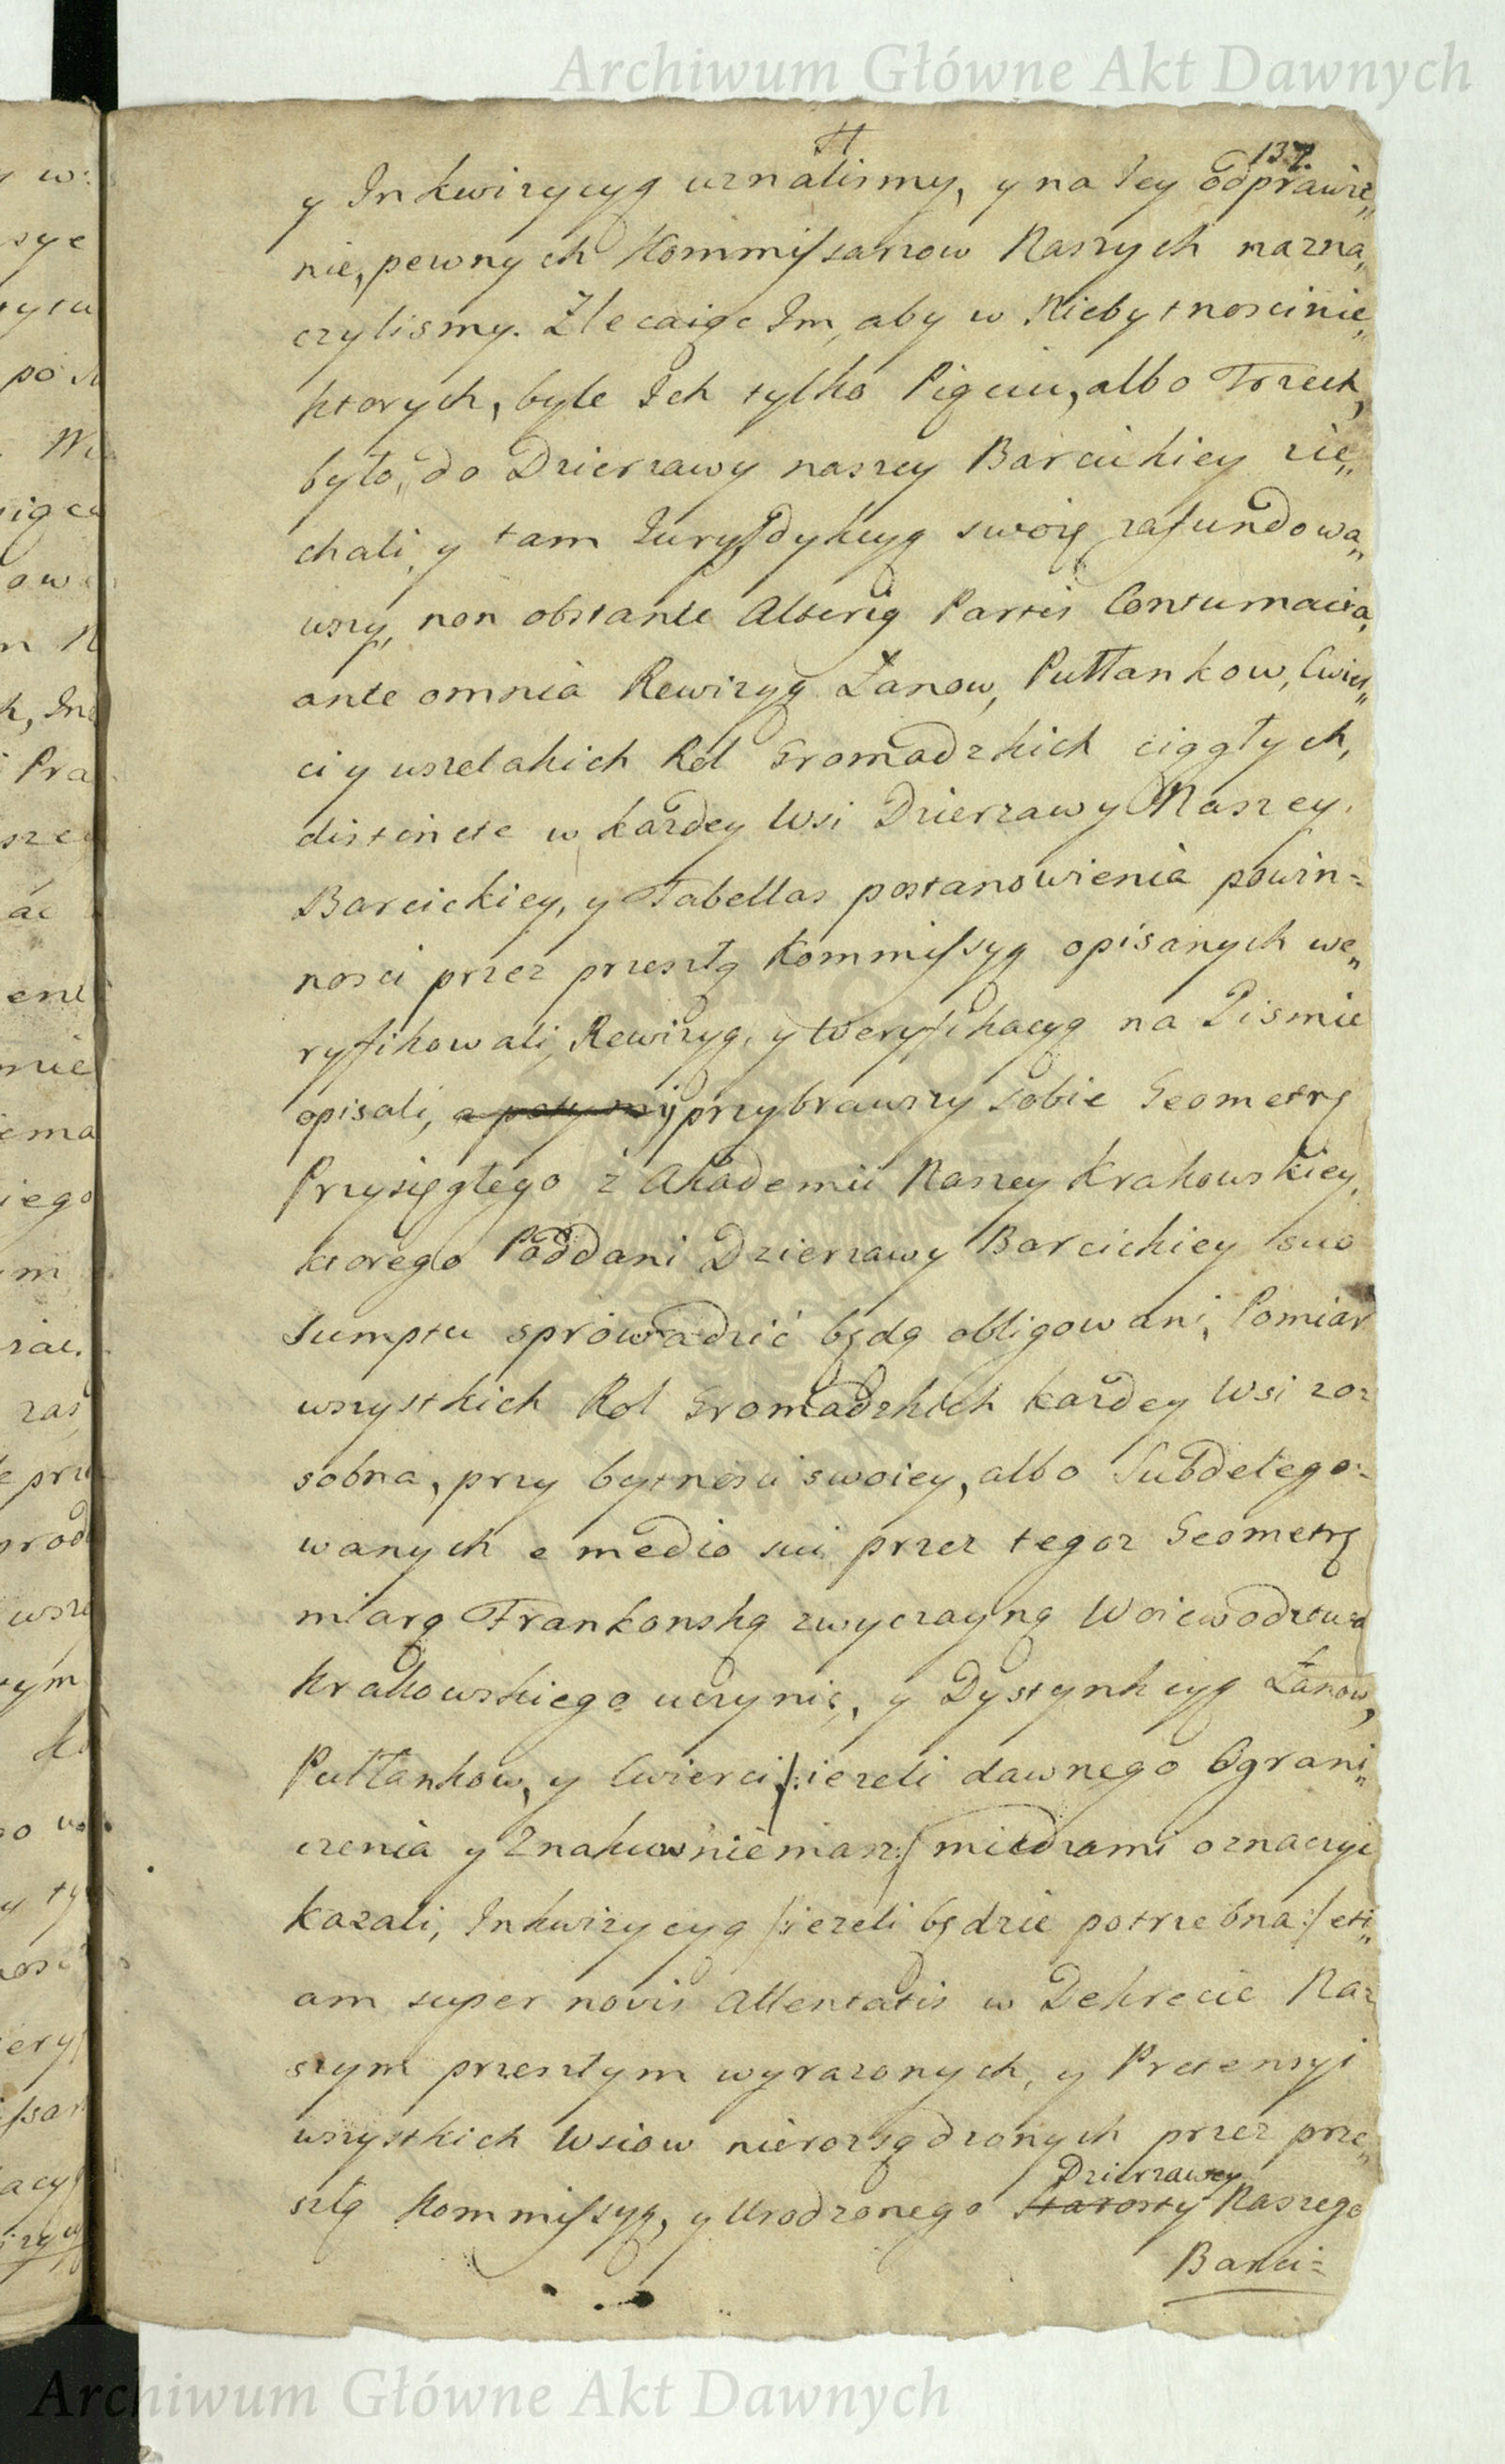 Archiwum Główne Akt Dawnych
137.
y Inkwizycyą uznalismy, y na Iey odprawie„
nie, pewnych Kommissarzow Naszych nazna„
czylismy. Zlecaiąc Im, aby w Niebytnosci nie„
ktorych, byle Ich tylko Pięciu, albo Trzech,
było, do Dzierzawy naszey Barcickiey zie„
chali, y tam Iurysdykcyą swoię zafundowa„
wszy, non obstante Alterig Partis Contumacia,
ante omnia Rewizyą Łanow, Pułłankow, Cwier„
ci y wszelakich Rol Gromadzkich ciągłych,
distincte w kazdey Wsi Dzierzawy Naszey
Barcickiey, y Tabellas postanowienia powin=
nosci przez przeszłą Kommissyą opisanych we„
ryfikowali, Rewizyą, y Weryfikacyą na Pismie
opisali, a potym y przybrawszy sobie Geometrę
Przysięgłego z Akademii Naszey Krakowskiey,
ktorego Poddani Dzierzawy Barcickiey suo
Sumptu sprowadzić będą obligowani, Pomiar
wszystkich Rol Gromadzkich kazdey Wsi zo=
sobna, przy bytnosci swoiey, albo Subdelego=
wanych e medio sui przez tegoz Geometrę
miarą Frankonską zwyczayną Woiewodztwa
Krakowskiego uczynić, y Dystynkcyą Łanow,
Pułłankow, y Cwierci /: iezeli dawnego Ograni„
czenia y Znakow niemasz :/ miedzami oznaczyć
kazali, Inkwizycyą /: iezeli będzie potrzebna :/ eti„
am super novis Attentatis w Dekrecie Na=
szym przeszłym wyrazonych, y Pretensyi
wszystkich Wsiow nierozsądzonych przez prze„
szłą Kommissyą, y Urodzonego Starosty Dzierzawcy Naszego
Barci=
Archiwum Główne Akt Dawnych